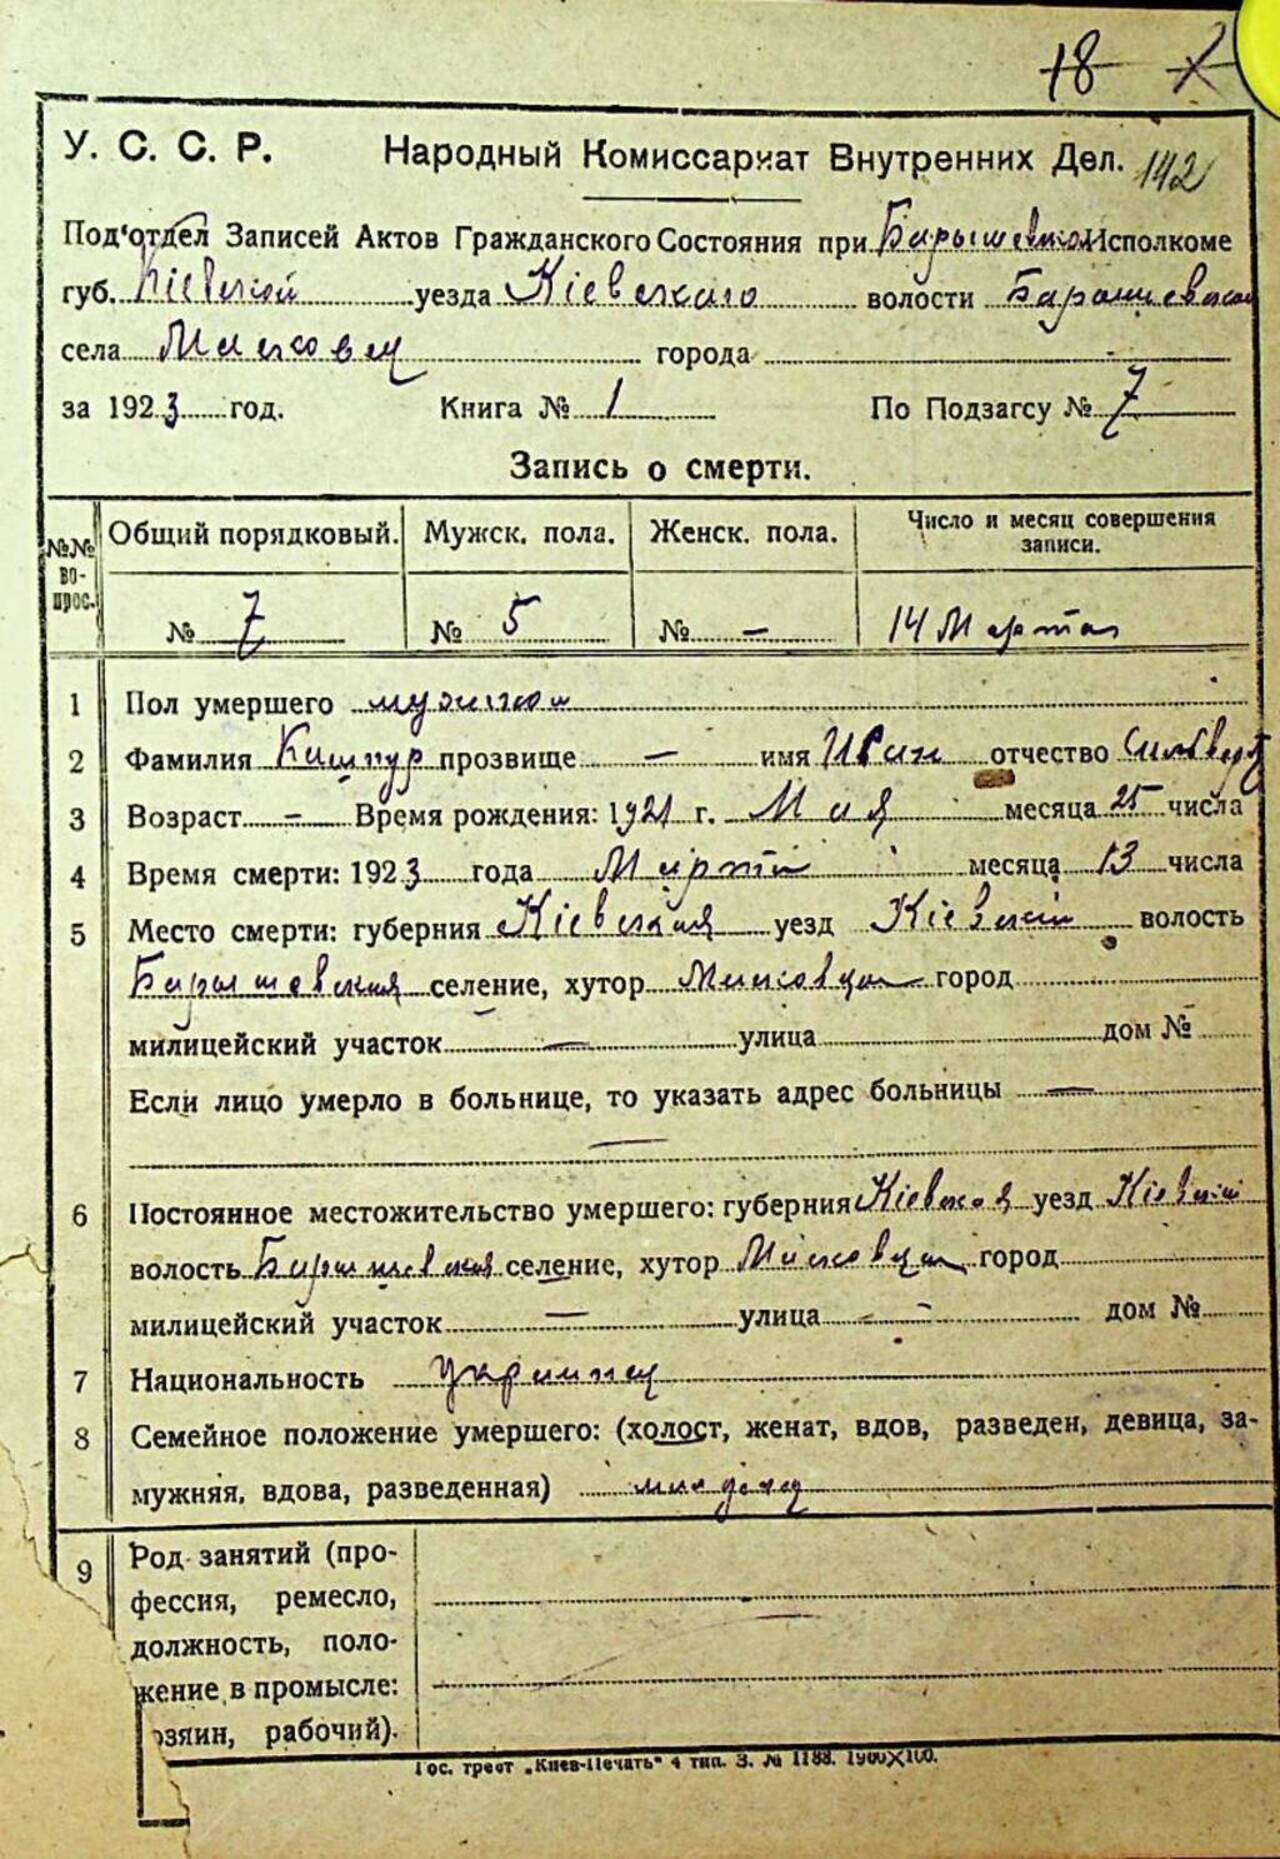 18
142
У. С. С. Р. Народный Комиссариат Внутренних Дел.
Под‘отдел Записей Актов Гражданского Состояния при Барышевском Исполкоме
губ. Кіевской уезда Кіевскаго волости Барышевской
села Масковец города
за 1923 год. Книга № 1 По Подзагсу № 7
Запись о смерти.
№№ во-прос. Общий порядковый. Мужск. пола. Женск. пола. Число и месяц совершения записи.
№ 7 № 5 № — 14 Марта
1 Пол умершего мужской
2 Фамилия прозвище — имя Иван отчество
3 Возраст — Время рождения: 1921 г. Мая месяца 25 числа
4 Время смерти: 1923 года Марта месяца 13 числа
5 Место смерти: губерния Кіевская уезд Кіевский волость
Барышевская селение, хутор Масковцы город
милицейский участок — улица дом №
Если лицо умерло в больнице, то указать адрес больницы —
—
6 Постоянное местожительство умершего: губерния Кіевская уезд Кіевский
волость Барышевская селение, хутор Масковцы город
милицейский участок — улица — дом №
7 Национальность украинец
8 Семейное положение умершего: (холост, женат, вдов, разведен, девица, за-
мужняя, вдова, разведенная) младенец
9 Род занятий (про-
фессия, ремесло,
должность, поло-
жение в промысле:
озяин, рабочий).
Гос. трест „Киев-Печать“ 4 тип. З. № 1188. 1900×100.